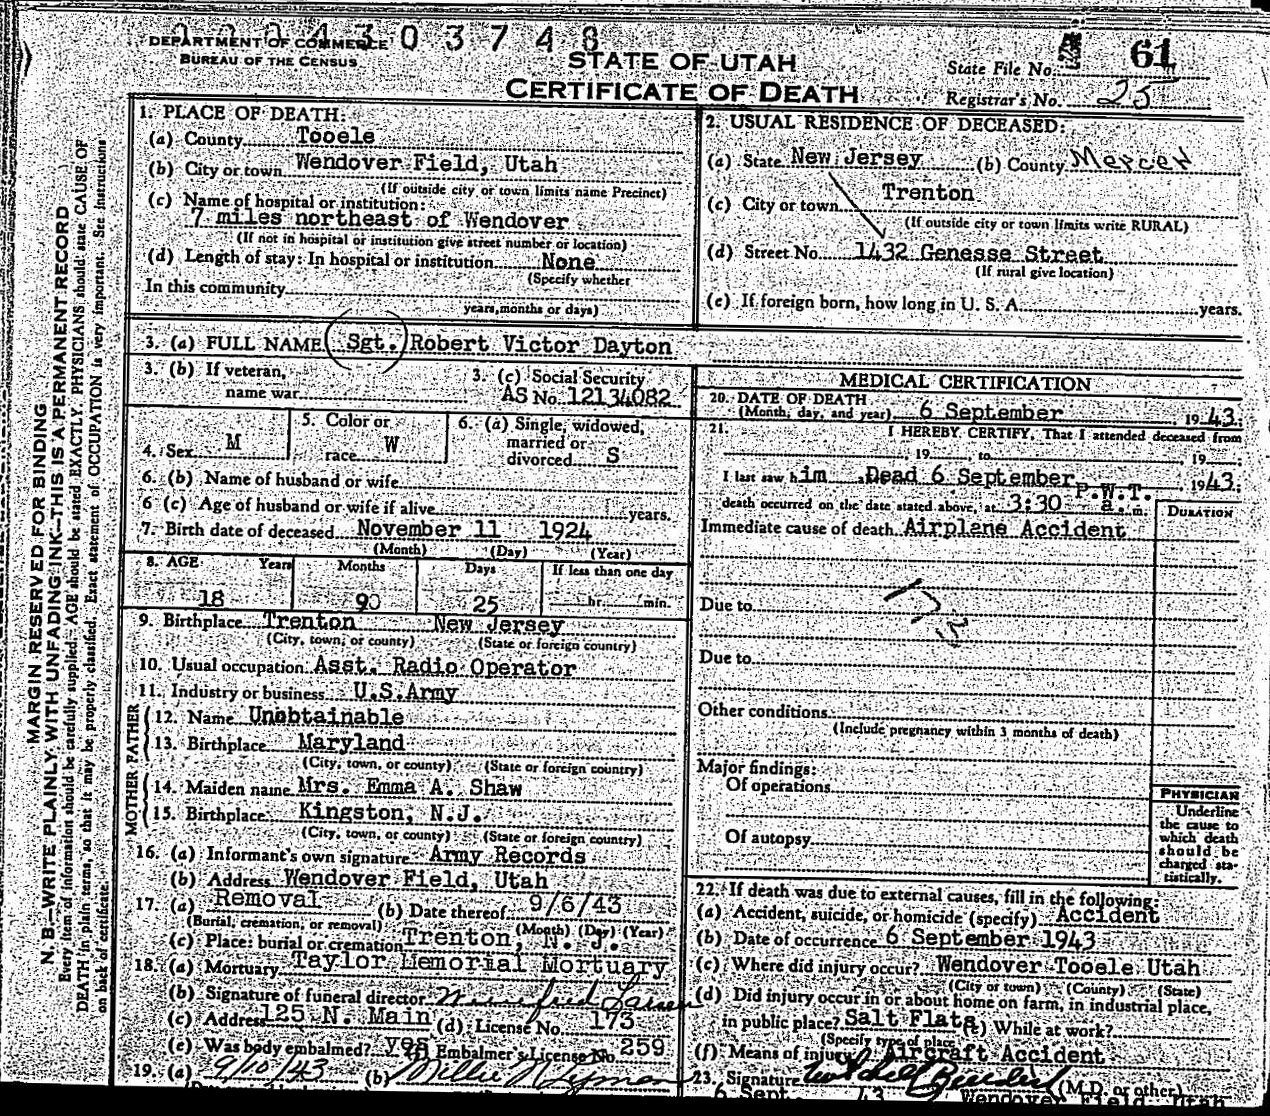 1204303748
DEPARTMENT OF COMMERCE
BUREAU OF THE CENSUS
STATE OF UTAH
CERTIFICATE OF DEATH
State File No. 61
Registrar's No. 25
1. PLACE OF DEATH:
(a) County Tooele
(b) City or town Wendover Field, Utah
(If outside city or town limits name Precinct)
(c) Name of hospital or institution:
7 miles northeast of Wendover
(If not in hospital or institution give street number or location)
(d) Length of stay: In hospital or institution None
(Specify whether
In this community
years, months or days)
2. USUAL RESIDENCE OF DECEASED:
(a) State New Jersey (b) County Mercer
(c) City or town Trenton
(If outside city or town limits write RURAL)
(d) Street No. 1432 Genesse Street
(If rural give location)
(e) If foreign born, how long in U. S. A. years.
3. (a) FULL NAME (Sgt.) Robert Victor Dayton
3. (b) If veteran,
name war
3. (c) Social Security
AS No. 12134082
4. Sex M
5. Color or
race W
6. (a) Single, widowed,
married or
divorced S
6. (b) Name of husband or wife
6 (c) Age of husband or wife if alive years.
7. Birth date of deceased November 11 1924
(Month) (Day) (Year)
8. AGE Years Months Days If less than one day
18 9 25 hr. min.
9. Birthplace Trenton New Jersey
(City, town, or county) (State or foreign country)
10. Usual occupation Asst. Radio Operator
11. Industry or business U.S.Army
FATHER
12. Name Unobtainable
13. Birthplace Maryland
(City, town, or county) (State or foreign country)
MOTHER
14. Maiden name Mrs. Emma A. Shaw
15. Birthplace Kingston, N.J.
(City, town, or county) (State or foreign country)
16. (a) Informant's own signature Army Records
(b) Address Wendover Field, Utah
17. (a) Removal (b) Date thereof 9/6/43
(Burial, cremation, or removal) (Month) (Day) (Year)
(c) Place: burial or cremation Trenton, N. J.
18. (a) Mortuary Taylor Memorial Mortuary
(b) Signature of funeral director Winnefred Larsen
(c) Address 125 N. Main (d) License No. 173
(e) Was body embalmed? yes (f) Embalmer's License No. 259
19. (a) 9/10/43 (b) Millie
MEDICAL CERTIFICATION
20. DATE OF DEATH
(Month, day, and year) 6 September 1943.
21. I HEREBY CERTIFY, That I attended deceased from
, 19 , to , 19 .
I last saw him Dead 6 September 1943.
P.W.T.
death occurred on the date stated above, at 3:30 a.m.
DURATION
Immediate cause of death Airplane Accident
173
Due to
Due to
Other conditions
(Include pregnancy within 3 months of death)
Major findings:
Of operations
Of autopsy
PHYSICIAN
Underline
the cause to
which death
should be
charged sta-
tistically.
22. If death was due to external causes, fill in the following:
(a) Accident, suicide, or homicide (specify) Accident
(b) Date of occurrence 6 September 1943
(c) Where did injury occur? Wendover Tooele Utah
(City or town) (County) (State)
(d) Did injury occur in or about home on farm, in industrial place,
in public place? Salt Flats (e) While at work?
(Specify type of place
(f) Means of injury Aircraft Accident
23. Signature (M.D. or other)
6 Sept. 43 Wendover Field, Utah
MARGIN RESERVED FOR BINDING
N. B.—WRITE PLAINLY, WITH UNFADING INK—THIS IS A PERMANENT RECORD
Every item of information should be carefully supplied. AGE should be stated EXACTLY. PHYSICIANS should state CAUSE OF
DEATH in plain terms, so that it may be properly classified. Exact statement of OCCUPATION is very important. See Instructions
on back of certificate.